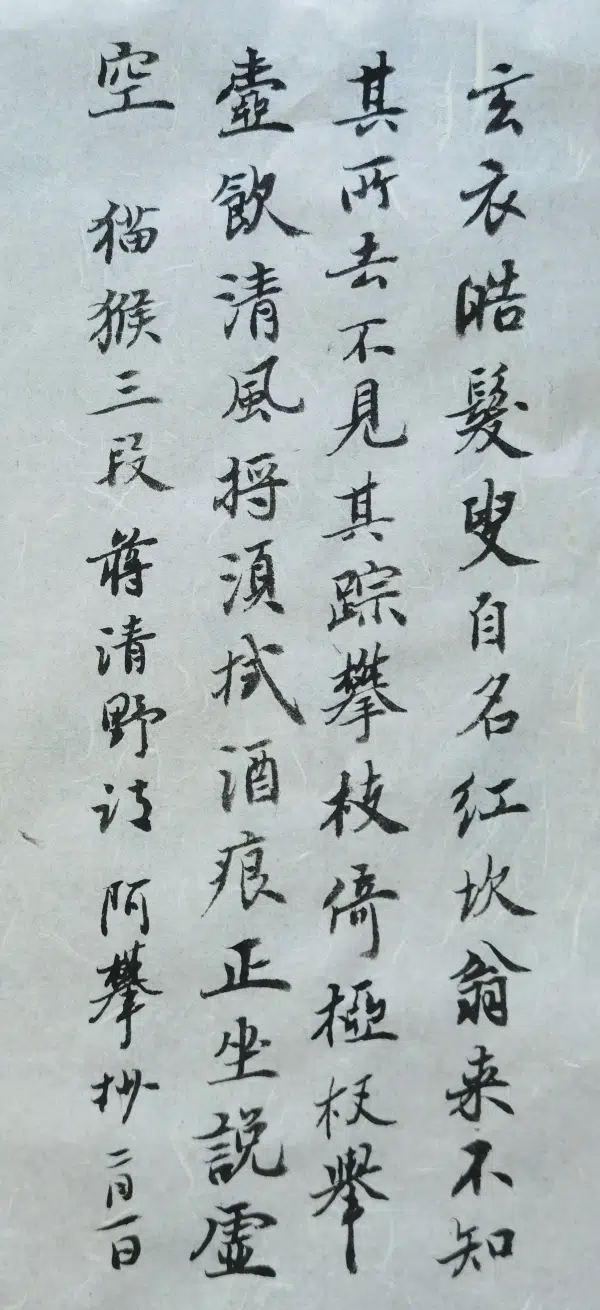 玄衣皓髮叟自名红坎翁来不知
其所去不見其踪攀枝倚極杖舉
壺飲清風捋須拭酒痕正坐説虛
空 猫猴三段 蒋清野诗 阿攀抄 二月一日